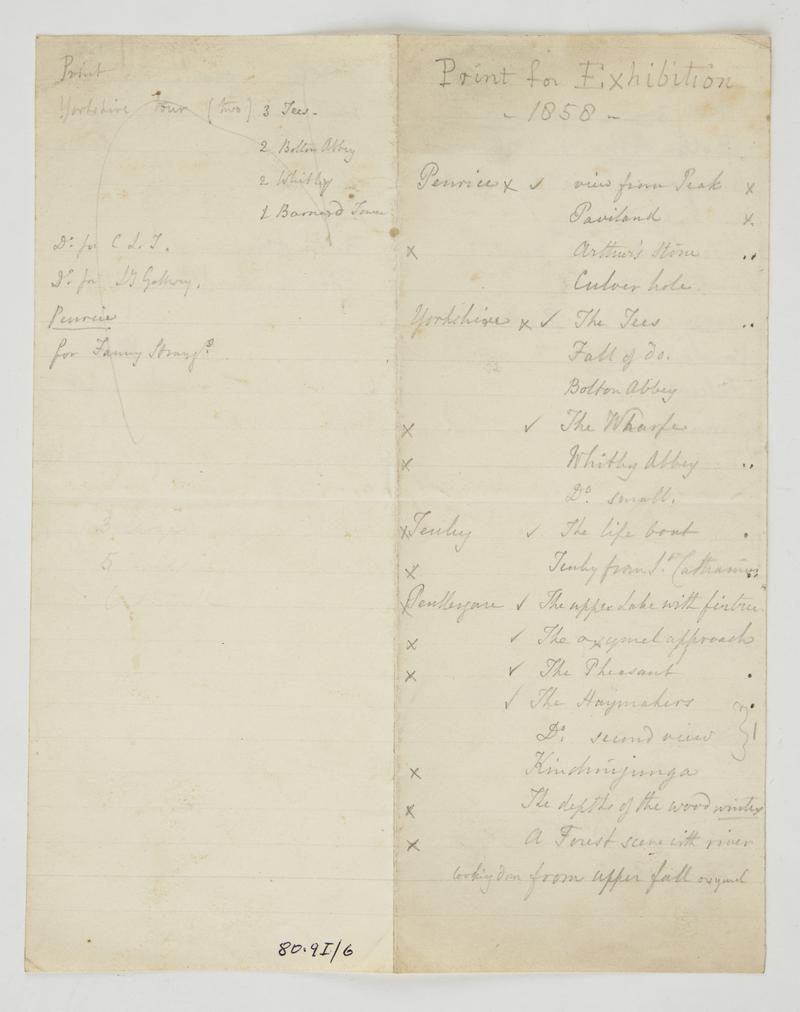 Print
Yorkshire Tour (two) 3 Tees.
2 Bolton Abbey
2 Whitby
1 Barnard Tower
Do. for C L. T.
Do. for
Penrice
for Fanny
3
5
80.9I/6
Print for Exhibition
- 1858 -
Penrice x ✓ view from Peak x
Paviland x.
x Arthur's Stone ..
Culver hole
Yorkshire x ✓ The Tees ..
Fall of do.
Bolton Abbey
x ✓ The Wharfe
x Whitby Abbey ..
Do. small.
x Tenby ✓ The life boat .
x Tenby from St. Catharines
x Penllergare ✓ The upper Lake with firtree
x ✓ The oxymel approach
x ✓ The Pheasant .
✓ The Haymakers .
Do. second view } 1
x Kinchinjunga
x The depths of the wood winter
x A Forest scene with river
looking down from upper fall oxymel